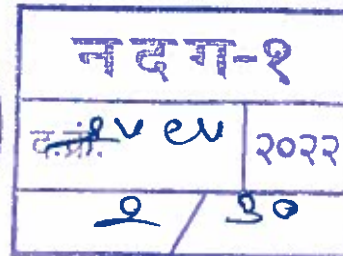 नदग-१
द.क्रं. २०२२
१ / ३०